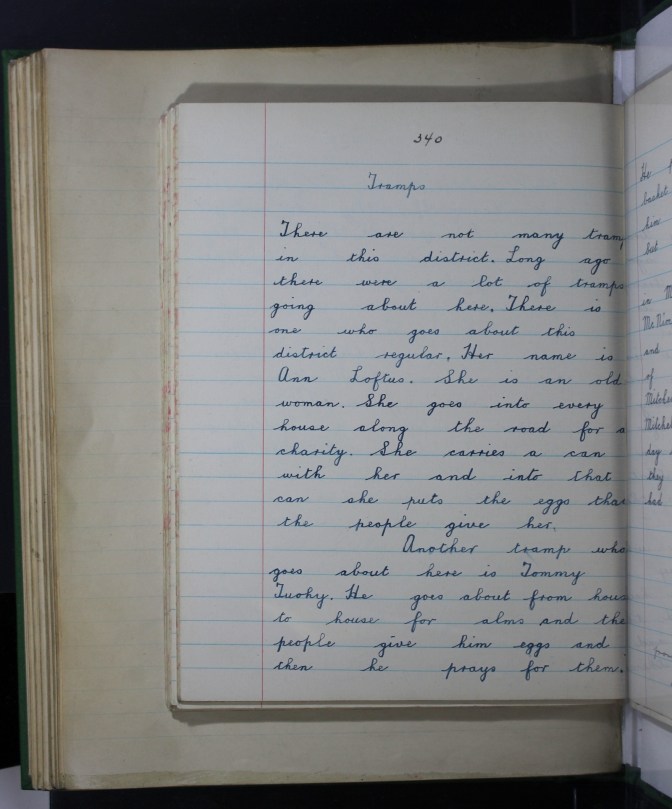 340
Tramps
There are not many tramps
in this district. Long ago
there were a lot of tramps
going about here. There is
one who goes about this
district regular. Her name is
Ann Loftus. She is an old
woman. She goes into every
house along the road for a
charity. She carries a can
with her and into that
can she puts the eggs that
the people give her.
Another tramp who
goes about here is Tommy
Tuohy. He goes about from house
to house for alms and the
people give him eggs and
then he prays for them.
He
basket
him
but
in
and
of
Mitchel
day
they
had